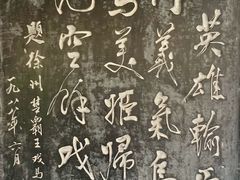 英雄輸
義氣
馬美姬歸
空餘戏
題徐州楚霸王戏马
一九八年六月